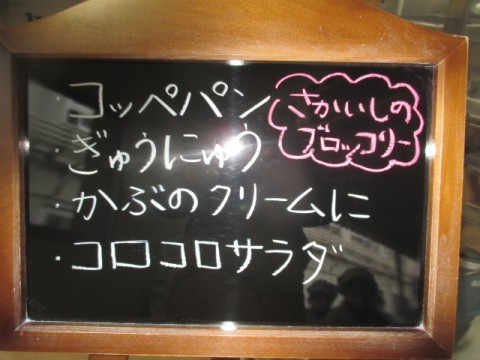 ・コッペパン
・ぎゅうにゅう
・かぶのクリームに
・コロコロサラダ
さかいしの
ブロッコリー